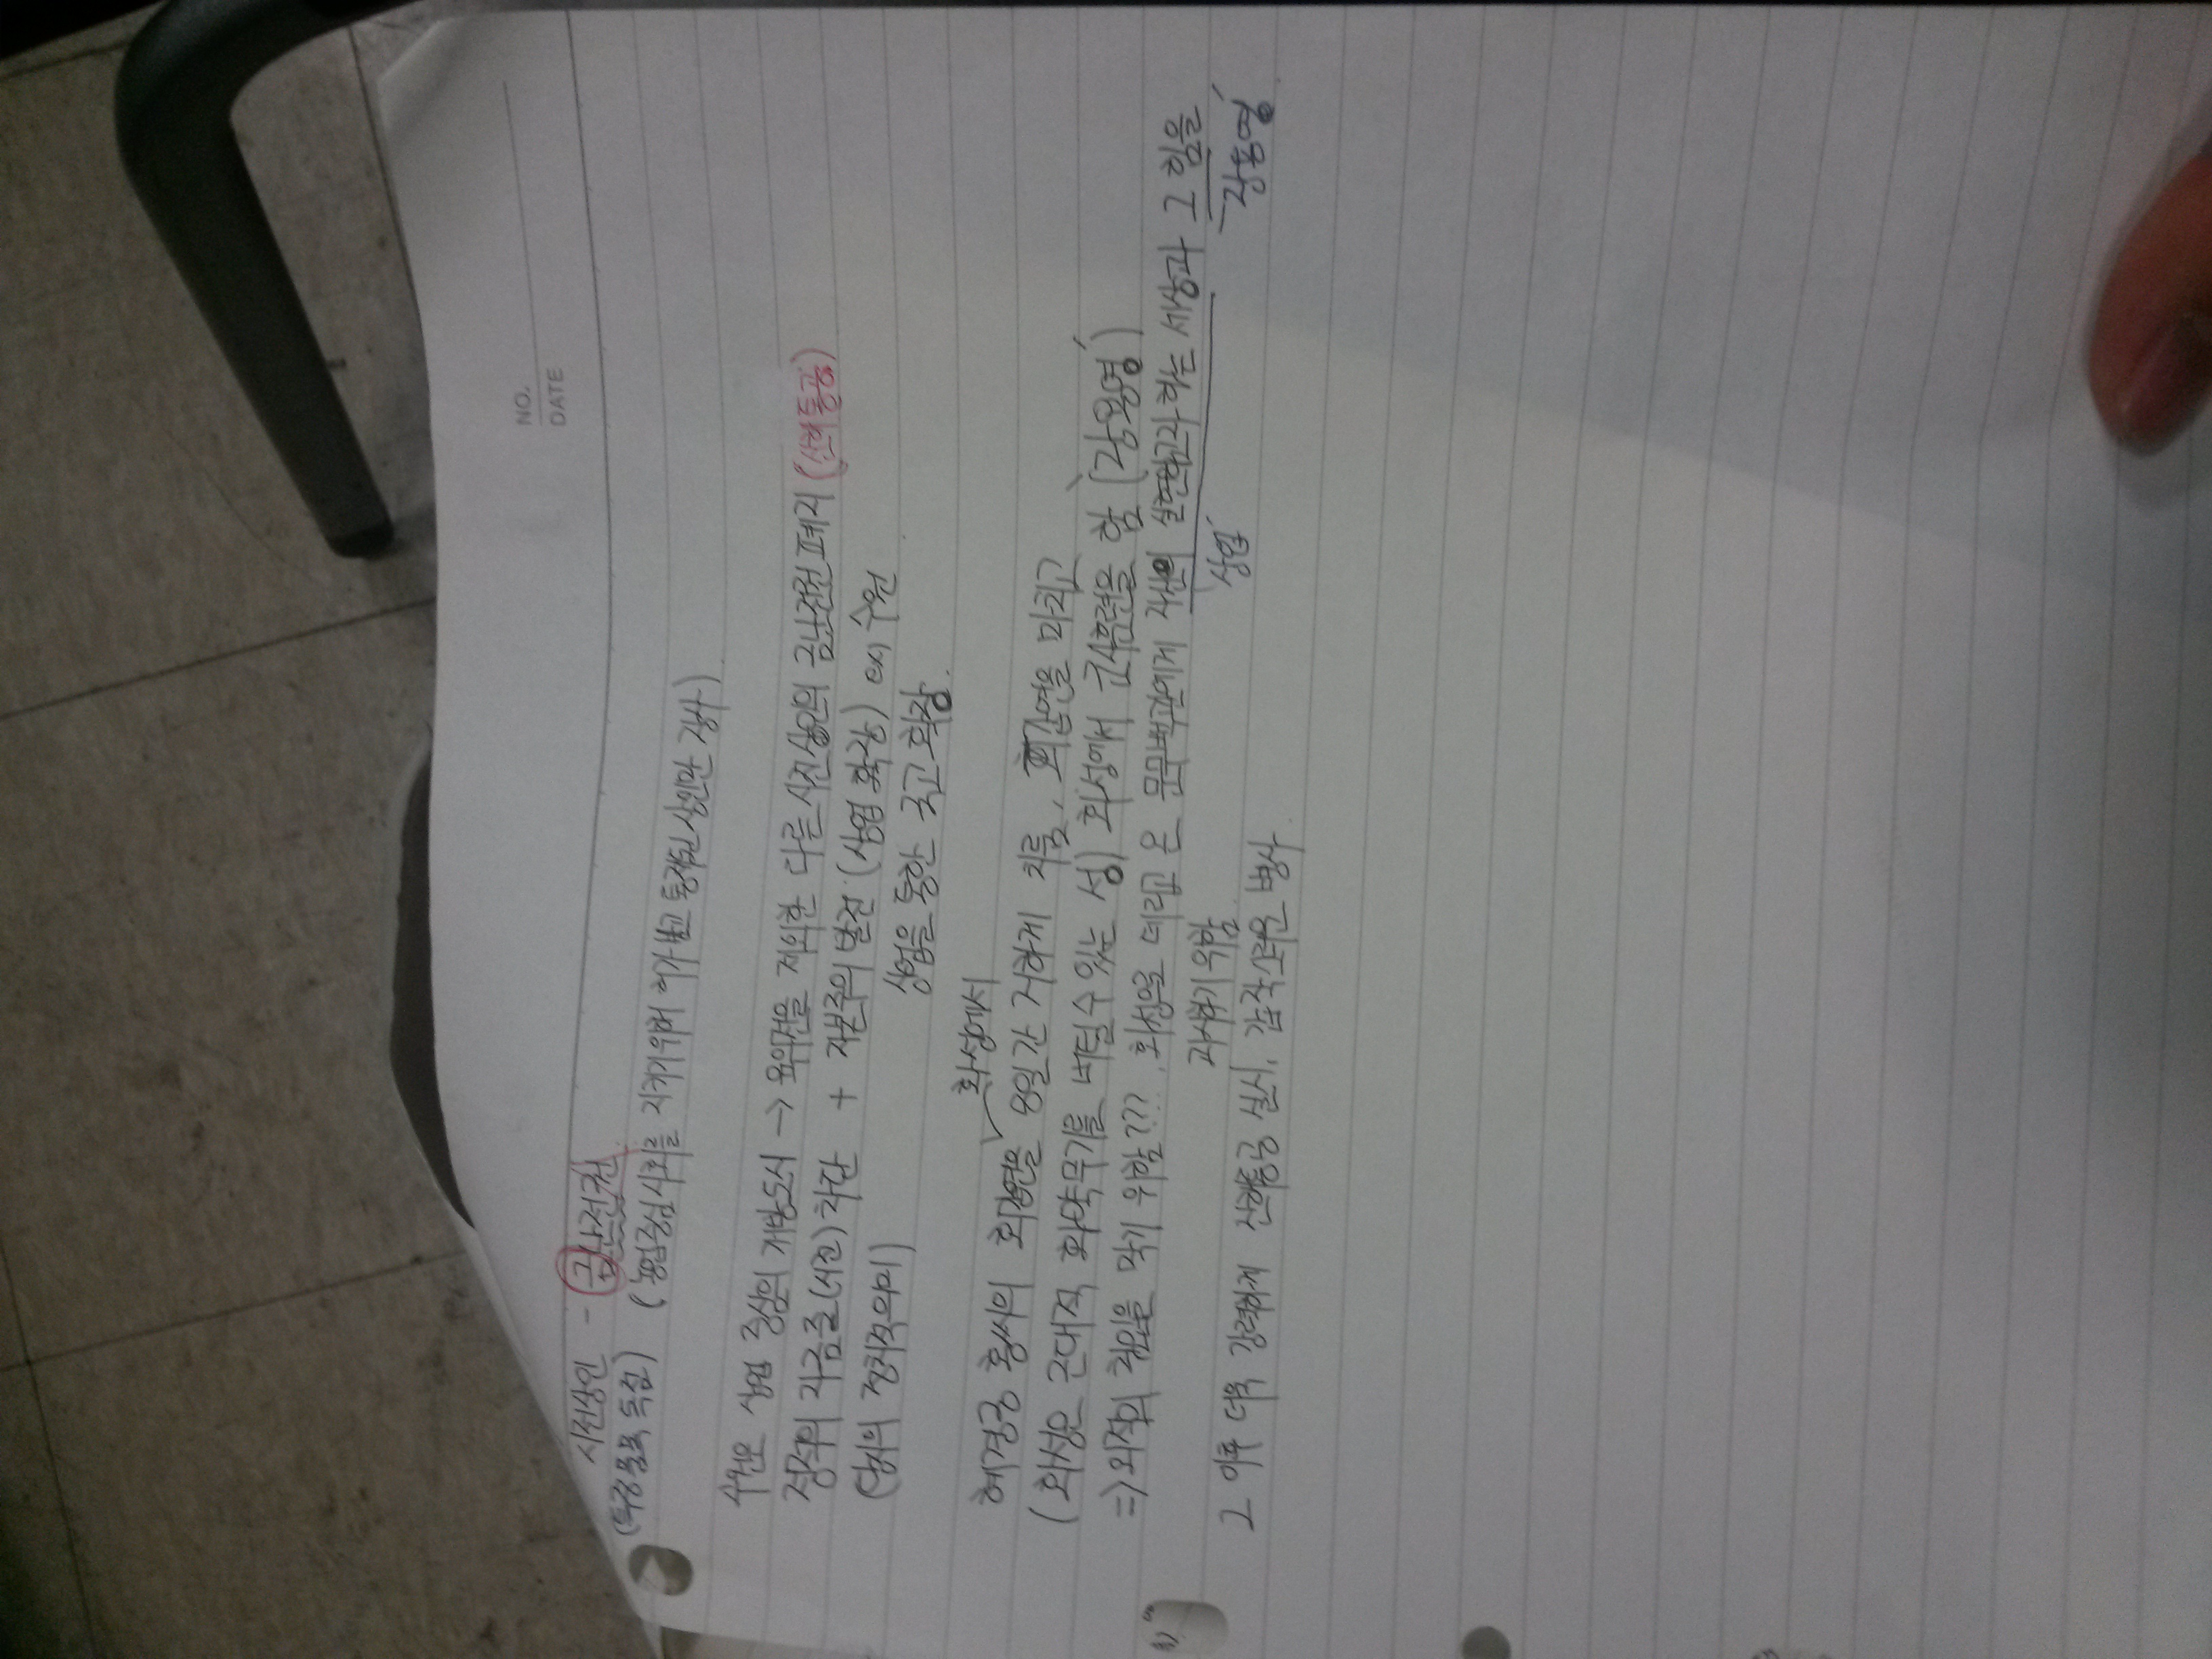 NO.
DATE
시전상인 - 금난전권
(특정물품 독점) (농업중심사회를 지키기위해 허가 받고 통제된 상인만 장사)
수원은 상업 중심의 개방도시 → 육의전을 제외한 다른 시전상인의 금난전권 폐지 (신해통공)
정적의 자금줄(시전) 차단 + 자본주의 발전 (상업 확장) ex) 수원
(당시의 정치적의미) 상업을 통한 국고 확장.
화성에서
혜경궁 홍씨의 회갑연을 8일간 거하게 치룸, 회갑연을 마치고
(화성은 근대적 화약무기를 버틸수 있는 성) 화성에서 군사훈련을 함 (장용영)
=> 외적의 침입을 막기 위함???, 화성으로 데리고 온 문무백관에게 자신의 실현하고자 하는 세상과 그 힘을
과시하기 위함 상업 장용영
그 이후 더욱 강력하게 신해통공 실시, 갑작스러운 병사.